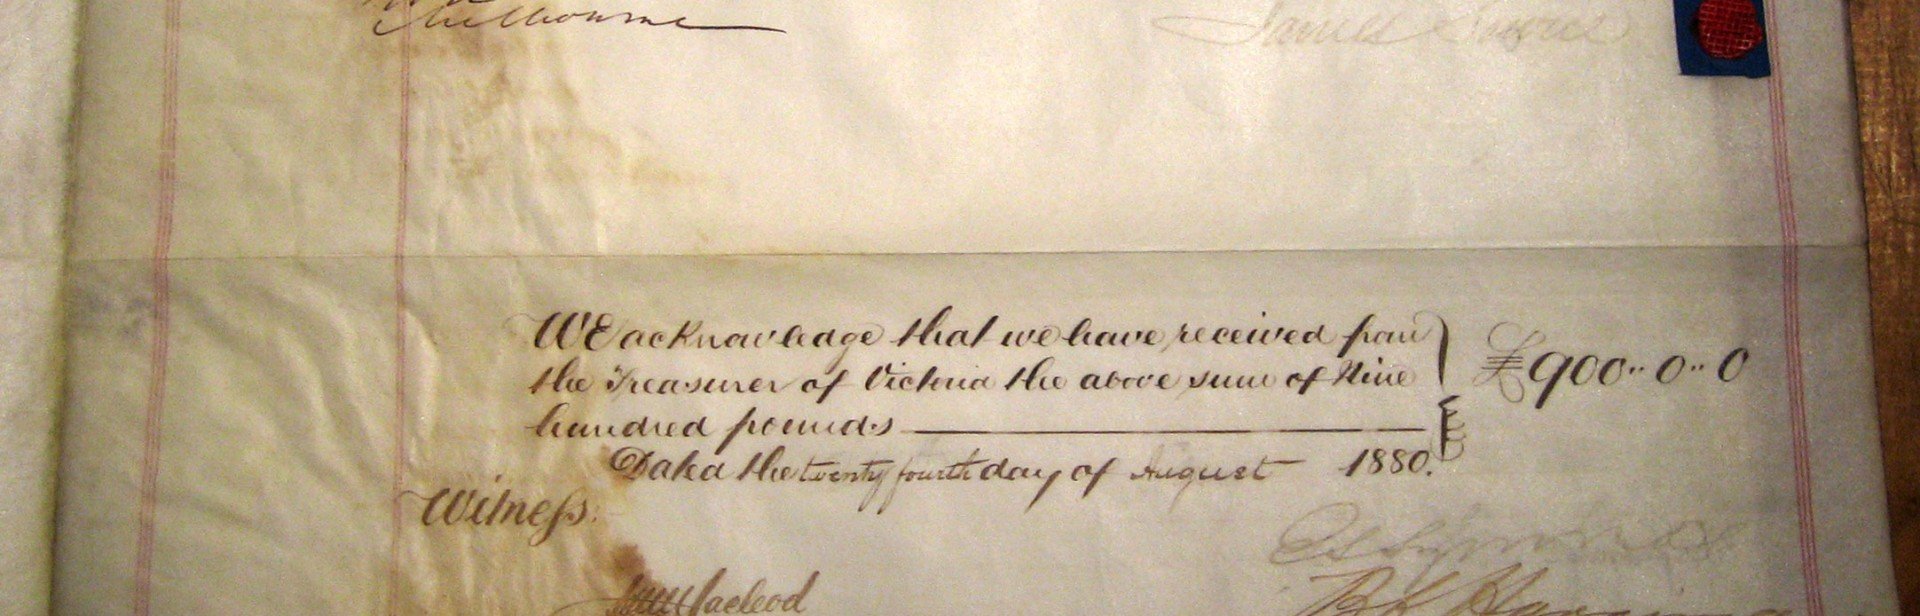 Melbourne
James
WE acknowledge that we have received from
the Treasurer of Victoria the above sum of Nine
hundred pounds
£900..0..0
Dated the twenty fourth day of August 1880.
Witness.
Macleod